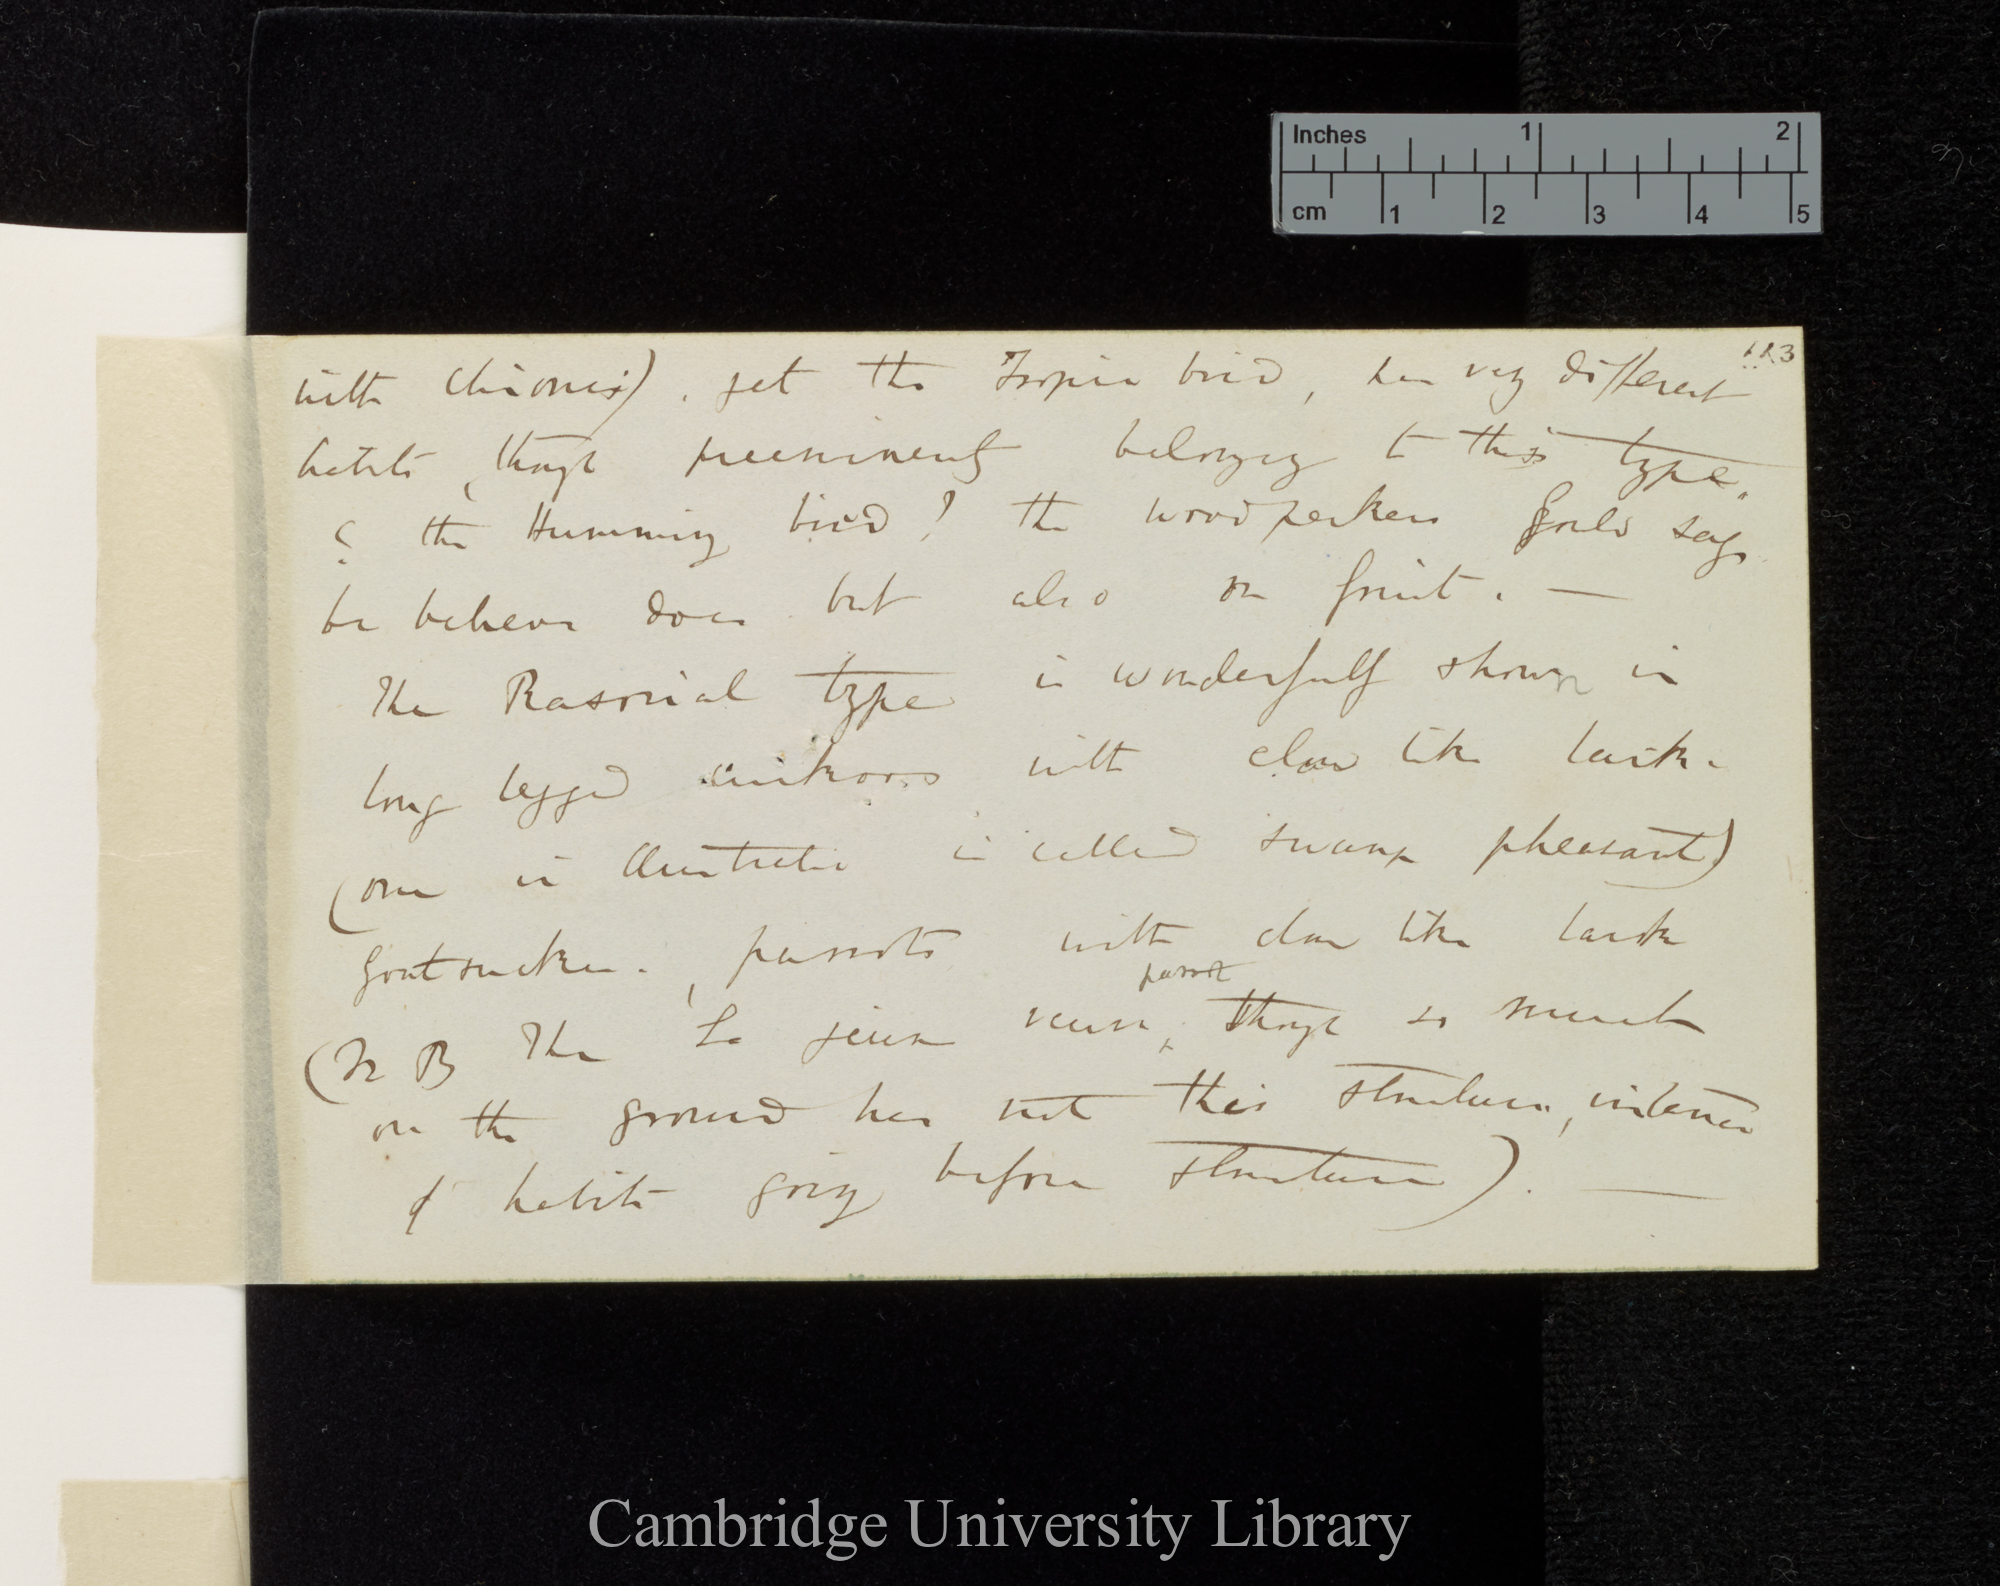 Inches 1 2
cm 1 2 3 4 5
113
with Chionis), yet the Tropic bird, has very different
habits, though preeminently belonging to this type.
? the Humming bird? the woodpeckers Gould says
he believes does but also on fruit. —
The Rasorial type is wonderfully shown in
long legged cuckoos with claw like lark.
(one in Australia is called swamp pheasant)
Goatsucker., parrots with claw like lark
parrot
(N B The La perouse, though so much
on the ground has not this structure, instance
of habits going before structure). —
Cambridge University Library